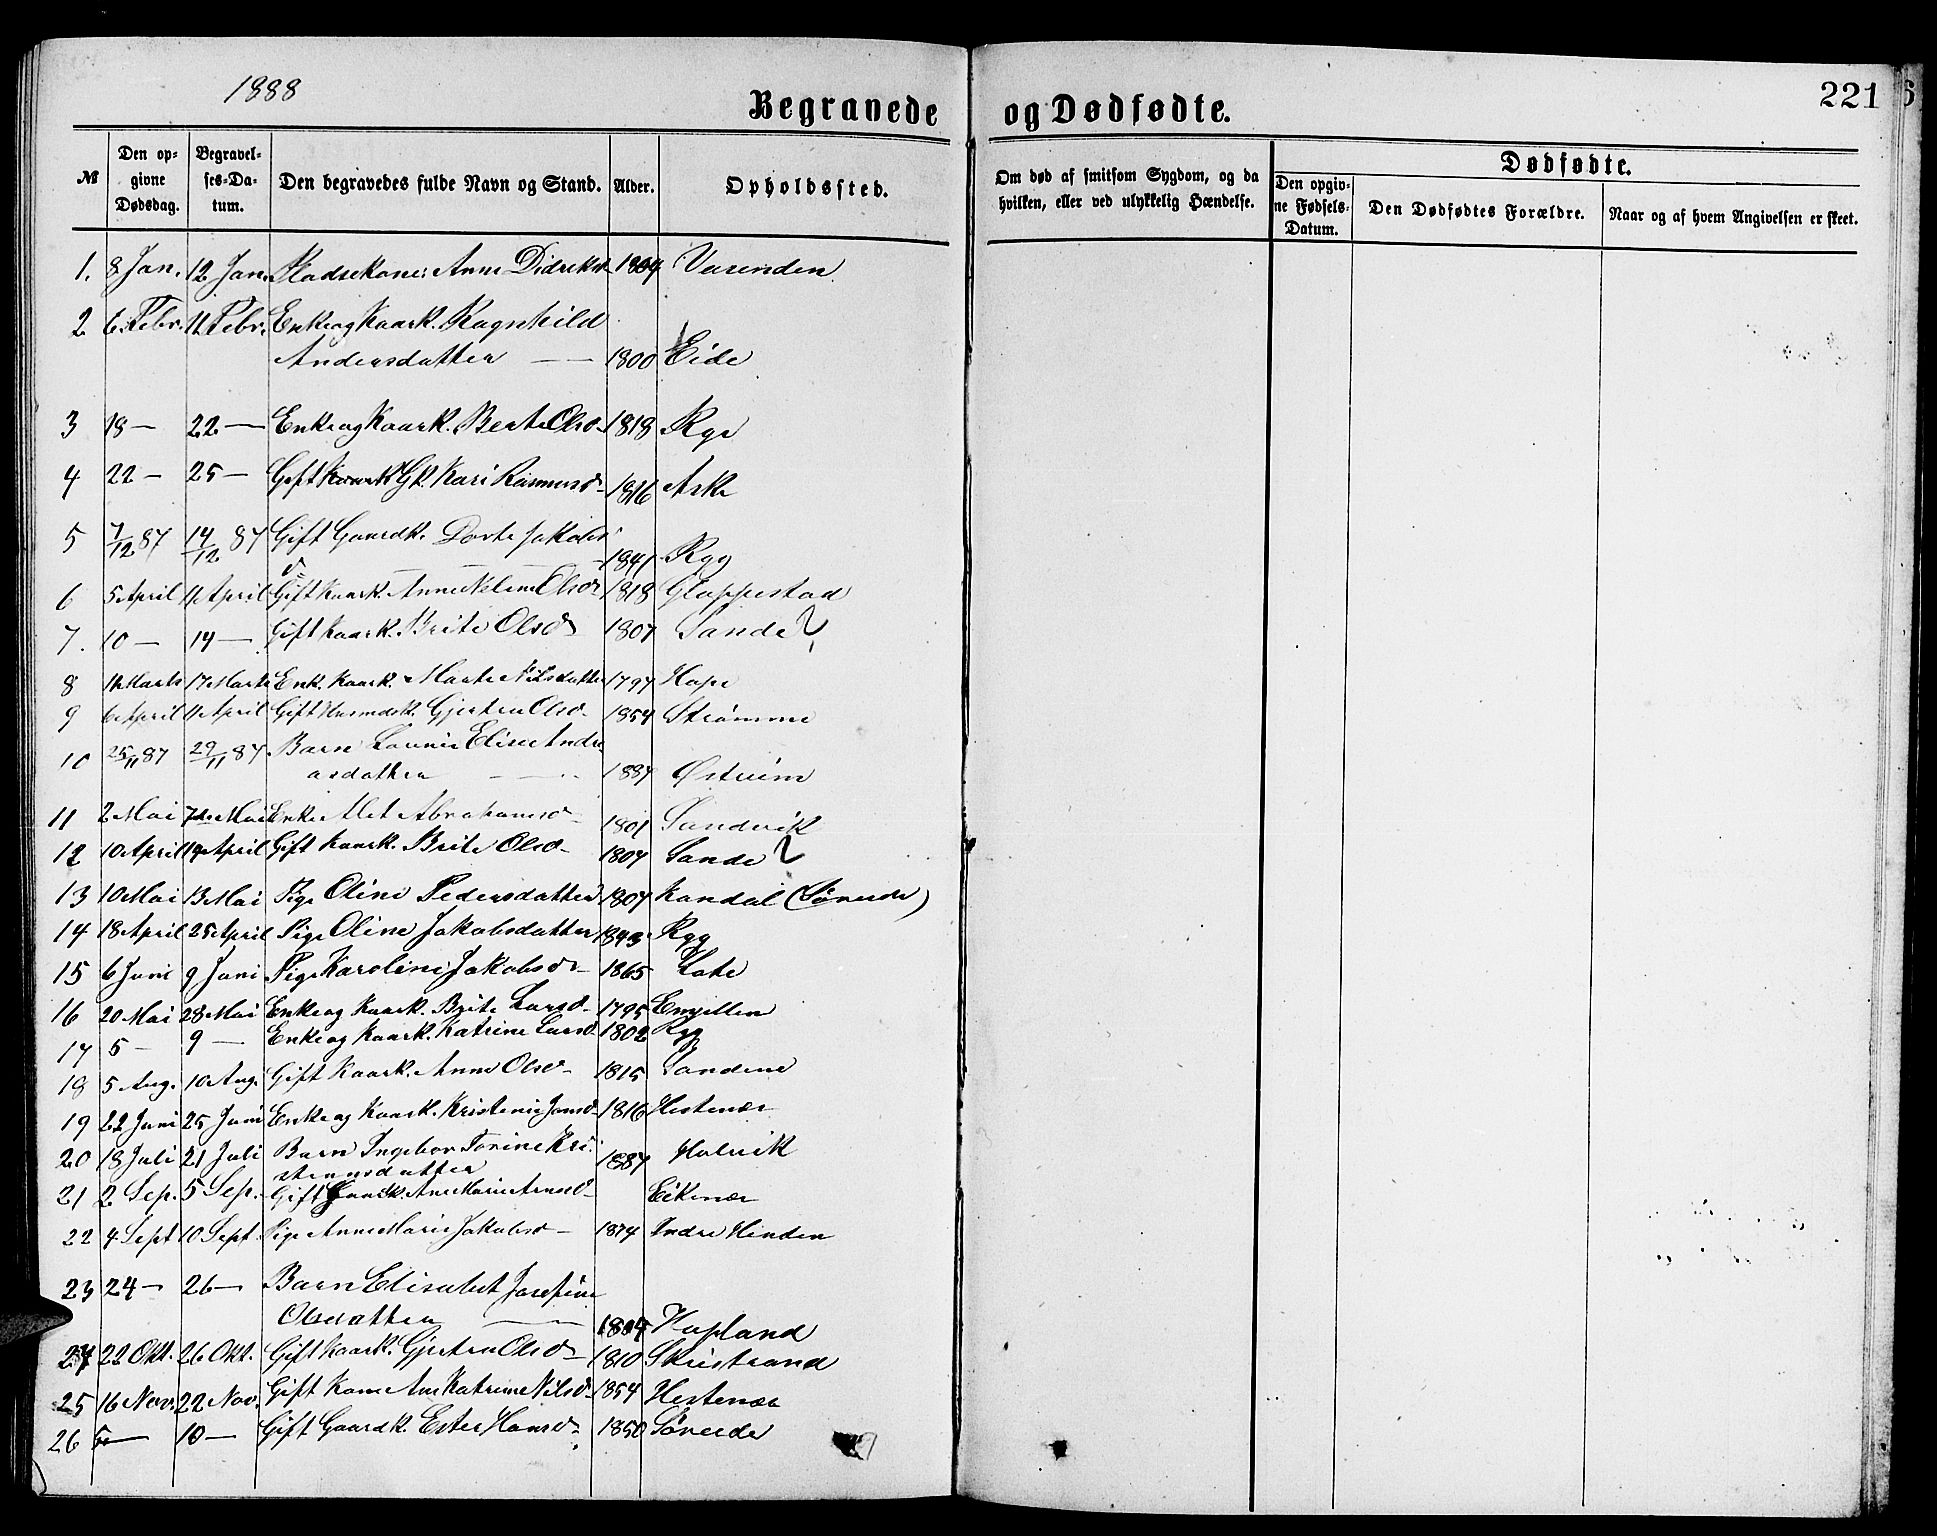 1888
Begravede og Dødfødte.
221
№ Den opgivne Dødsdag. Begravelses-Datum. Den begravedes fulde Navn og Stand. Alder. Opholdssted. Om død af smitsom Sygdom, og da hvilken, eller ved ulykkelig Hændelse. Dødfødte. Den opgivne Fødsels-Datum. Den Dødfødtes Forældre. Naar og af hvem Angivelsen er skeet.
1. 8 Jan. 12 Jan. Pladsekone: Anne Didriksd. Vasenden
2 6 Febr. 11 Febr. Enke og Kaark. Ragnhild
Andersdatter — 1800 Eide
3 18 — 22 — Enke og Kaark. Berte Olsd. 1818 Ryg
4 22 — 25 — Gift Gk. Kari Rasmusd. 1816 Aske
5 7/12 87 14/12 87 Gift Gaardk. Dorte Jakobs
d — 1841 Rygg
6 5 April 11 April Gift Kaark. Anne Olsd 1818 Gloppestad
7. 10 — 14 — Gift Kaark. Brite Olsd 1807 Sande
8 11 Marts 17 Marts Enk. Kaark. Marte Nilsdatter 1797 Hope
9 6 April 11 April Gift Husmdsk. Gjertru Olsd. 1854 Strømme
10 25/11 87 29/11 87 Barn Lovise Elise Andre
asdatter — 1887 Østrem
11 2 Mai 7de Mai Enke Alet Abrahamsd. 1801 Sandvik
12 10 April 14 April Gift Kaark. Brite Olsd. 1807 Sande
13 10 Mai 13 Mai Pige Oline Pedersdatter 1807 Kandal (Søreide)
14 18 April 25 April Pige Oline Jakobsdatter 1843 Rygg
15 6 Juni 9 Juni Pige Karoline Jakobsd. 1865 Lote
16 20 Mai 28 Mai Enke og Kaark. Brite Larsd. 1795 Emjellen
17 5 — 9 — Enke og Kaark. Katrine Larsd 1802 Rygg
18 5 Aug. 10 Aug. Gift Kaark. Anne Olsd. 1815 Sandene
19 22 Juni 25 Juni Enke og Kaark. Kristense Jonsd. 1816 Hestenær
20 18 Juli 21 Juli Barn Ingebor Torine Kri-
stensdatter 1887 Holvik
21 2 Sep. 5 Sep. Gift Ane Marie Arnsd. Eikenær
22 4 Sept 10 Sept. Pige Anne Marie Jakobsd — 1874 Indre Hinden
23 24 — 26 — Barn Elisabet Josefine
Olsdatter — Hopland
24 22 Okt. 26 Okt. Gift Kaark. Gjertru Olsd. 1810 Skristrand
25 16 Nov. 22 Nov. Gift Kone Ane Katrine Nilsd. 1854 Hestenær
26 5 — 10 — Gift Gaardk. Ester Hansd. 1850 Søreide